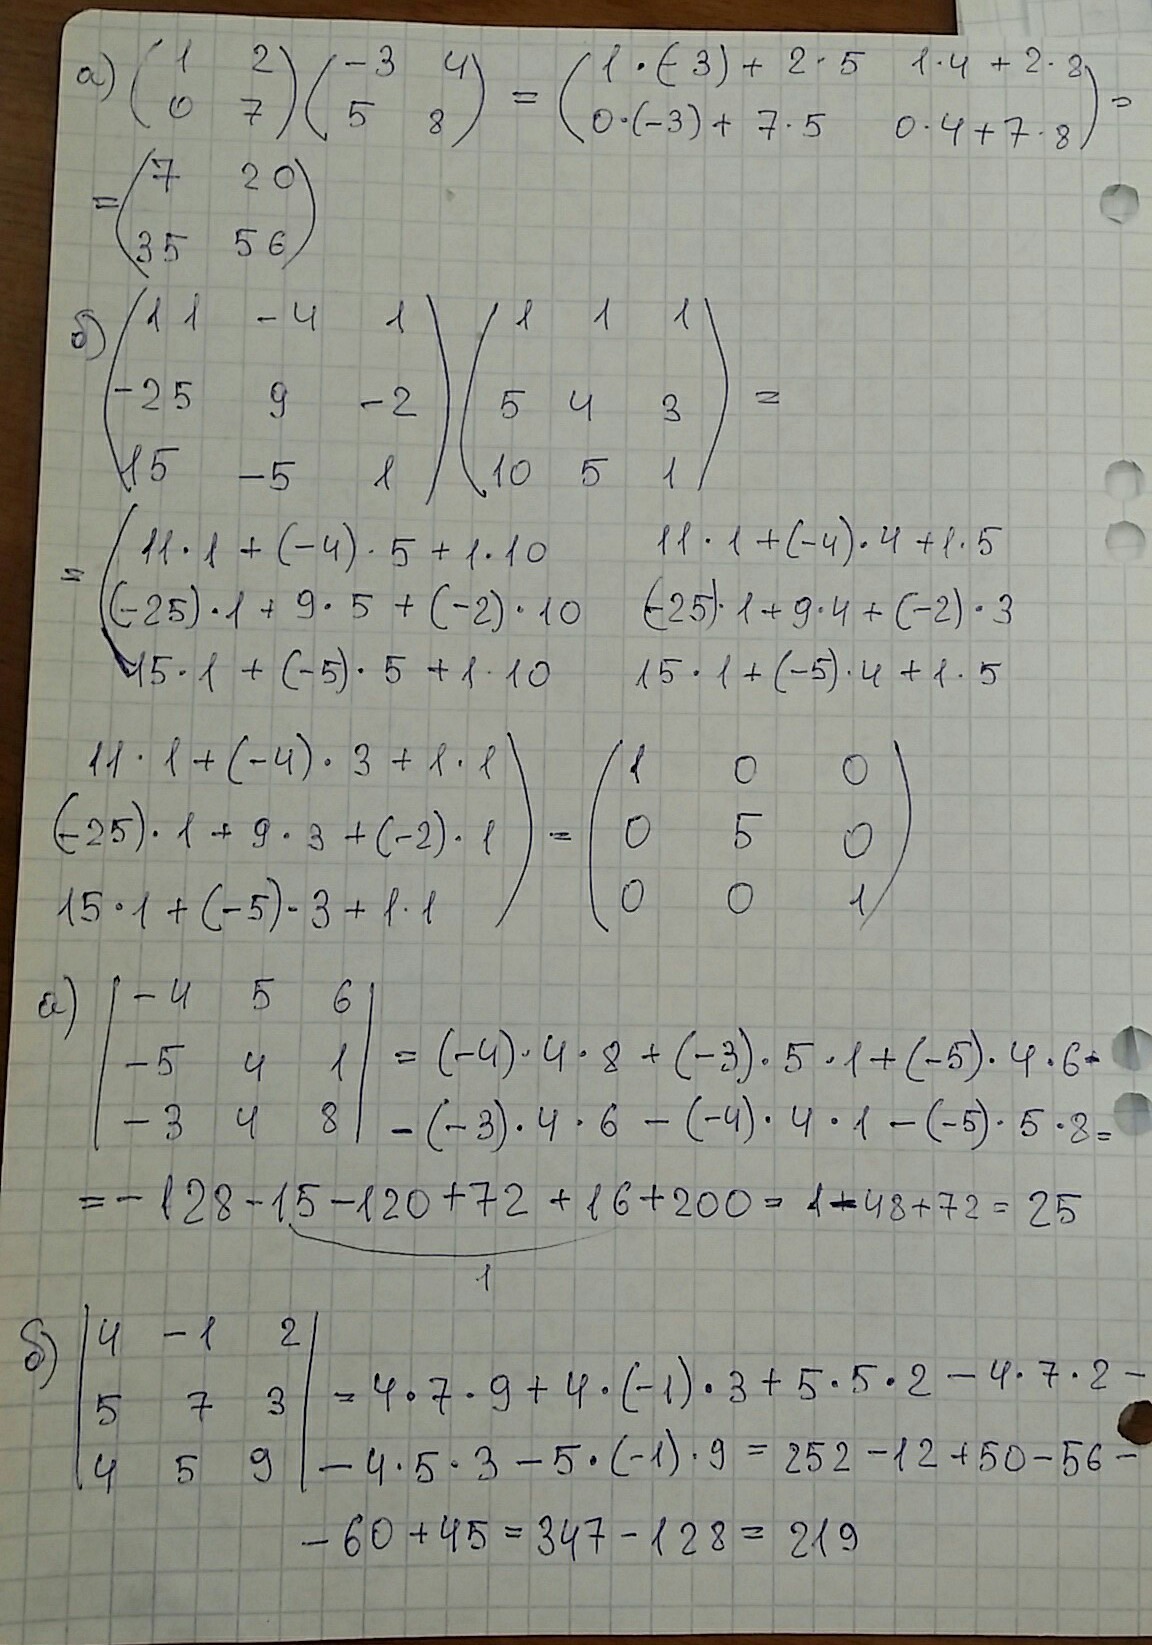 а) (1 2
0 7) (-3 4
5 8) = (1·(-3)+2·5 1·4+2·8
0·(-3)+7·5 0·4+7·8) =
= (7 20
35 56)
б) (11 -4 1
-25 9 -2
15 -5 1) (1 1 1
5 4 3
10 5 1) =
= (11·1+(-4)·5+1·10 11·1+(-4)·4+1·5
(-25)·1+9·5+(-2)·10 (-25)·1+9·4+(-2)·3
15·1+(-5)·5+1·10 15·1+(-5)·4+1·5
11·1+(-4)·3+1·1
(-25)·1+9·3+(-2)·1
15·1+(-5)·3+1·1) = (1 0 0
0 5 0
0 0 1)
а) |-4 5 6
-5 4 1
-3 4 8| = (-4)·4·8+(-3)·5·1+(-5)·4·6-
-(-3)·4·6-(-4)·4·1-(-5)·5·8=
=-128-15-120+72+16+200= 1-48+72=25
1
б) |4 -1 2
5 7 3
4 5 9| = 4·7·9+4·(-1)·3+5·5·2-4·7·2-
-4·5·3-5·(-1)·9=252-12+50-56-
-60+45=347-128=219